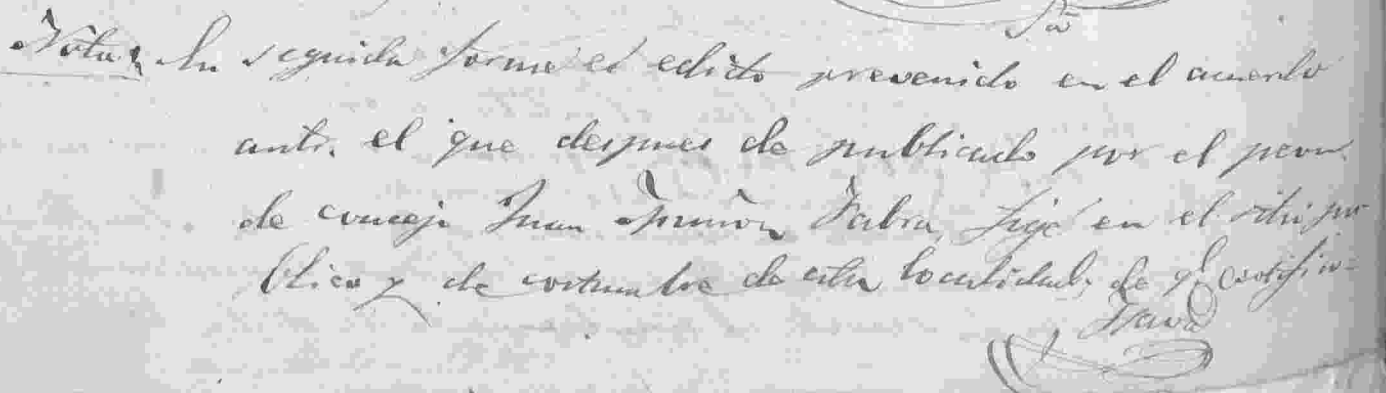 Nota; En seguida formé el edicto prevenido en el acuerdo
antr. el que despues de publicado por el peon
de concejo Juan Fabra, fijé en el sitio pu
blico y de costumbre de esta localidad; de q.l certifico=